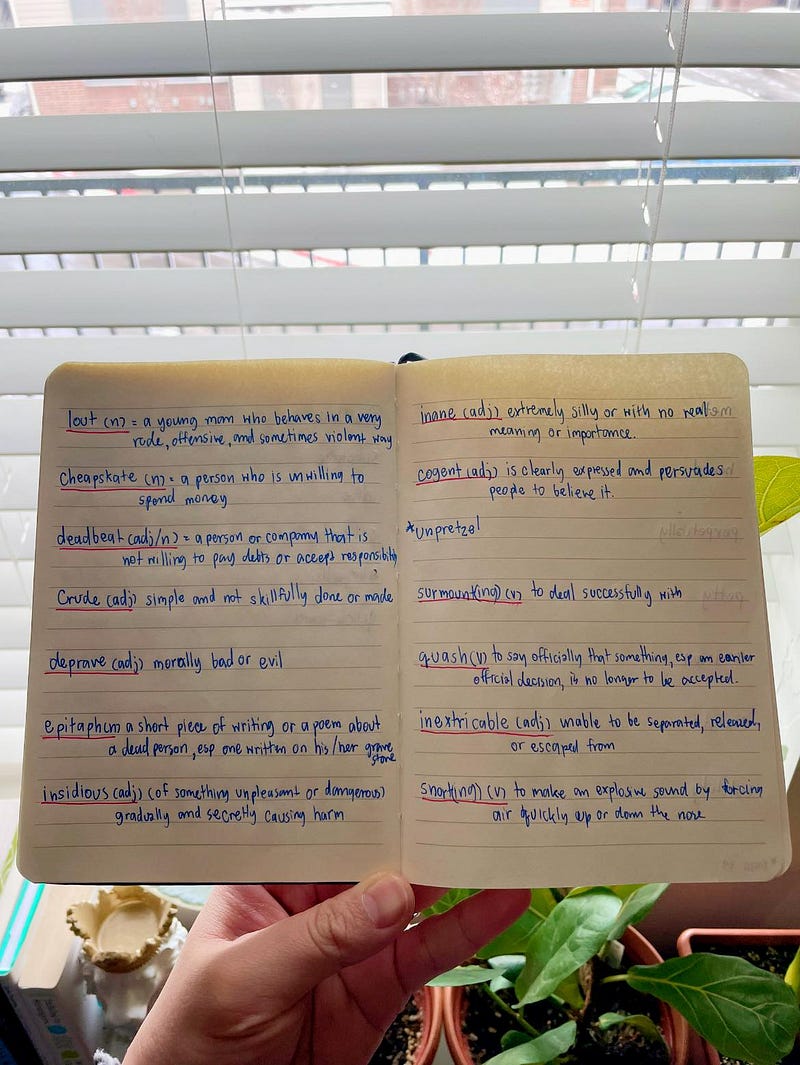 lout (n) = a young man who behaves in a very
rude, offensive, and sometimes violent way
cheapskate (n) = a person who is unwilling to
spend money
deadbeat (adj/n) = a person or company that is
not willing to pay debts or accept responsibility
Crude (adj) simple and not skillfully done or made
deprave (adj) morally bad or evil
epitaph(n) a short piece of writing or a poem about
a dead person, esp one written on his/her grave
stone
insidious (adj) (of something unpleasant or dangerous)
gradually and secretly causing harm
inane (adj) extremely silly or with no real
meaning or importance.
cogent (adj) is clearly expressed and persuades
people to believe it.
*unpretzel
surmount(ing) (v) to deal successfully with
quash (v) to say officially that something, esp an earlier
official decision, is no longer to be accepted.
inextricable (adj) unable to be separated, released,
or escaped from
snort(ing) (v) to make an explosive sound by forcing
air quickly up or down the nose